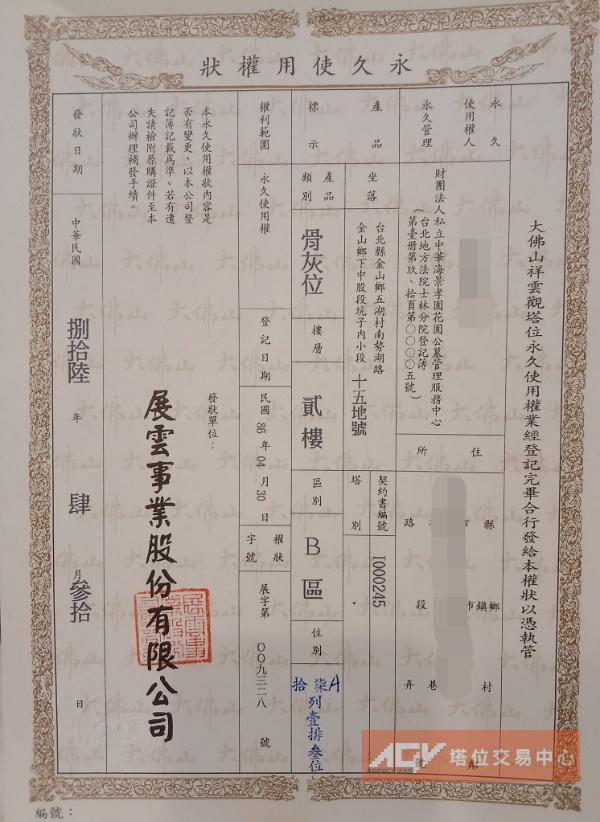 永久使用權狀
大佛山祥雲觀塔位永久使用權業經登記完畢合行發給本權狀以憑執管
永久
使用權人
住
所
縣
市
鄉
市鎮
村
路
段
巷
弄
永久管理
財團法人私立中華海景孝園花園公墓管理服務中心
(台北地方法院士林分院登記簿
第壹冊第玖、拾頁第〇〇〇〇五號)
產品
標示
坐落
台北縣金山鄉五湖村南勢湖路
金山鄉下中股段坑子內小段
十五地號
契約書編號
1000245
塔別
產品
類別
骨灰位
樓層
貳樓
區別
B區
位別
A
柒列壹排叁位
拾
權利範圍
永久使用權
登記日期
民國86年04月30日
權狀
字號
展字第
〇〇九三二八
號
本永久使用權狀內容是
否有變更,以本公司登
記簿記載為準。若有遺
失請檢附原購證件至本
公司辦理補發手續。
發狀單位:
展雲事業股份有限公司
發狀日期
中華民國
捌拾陸
年
肆
月
參拾
日
編號:
AGV 塔位交易中心